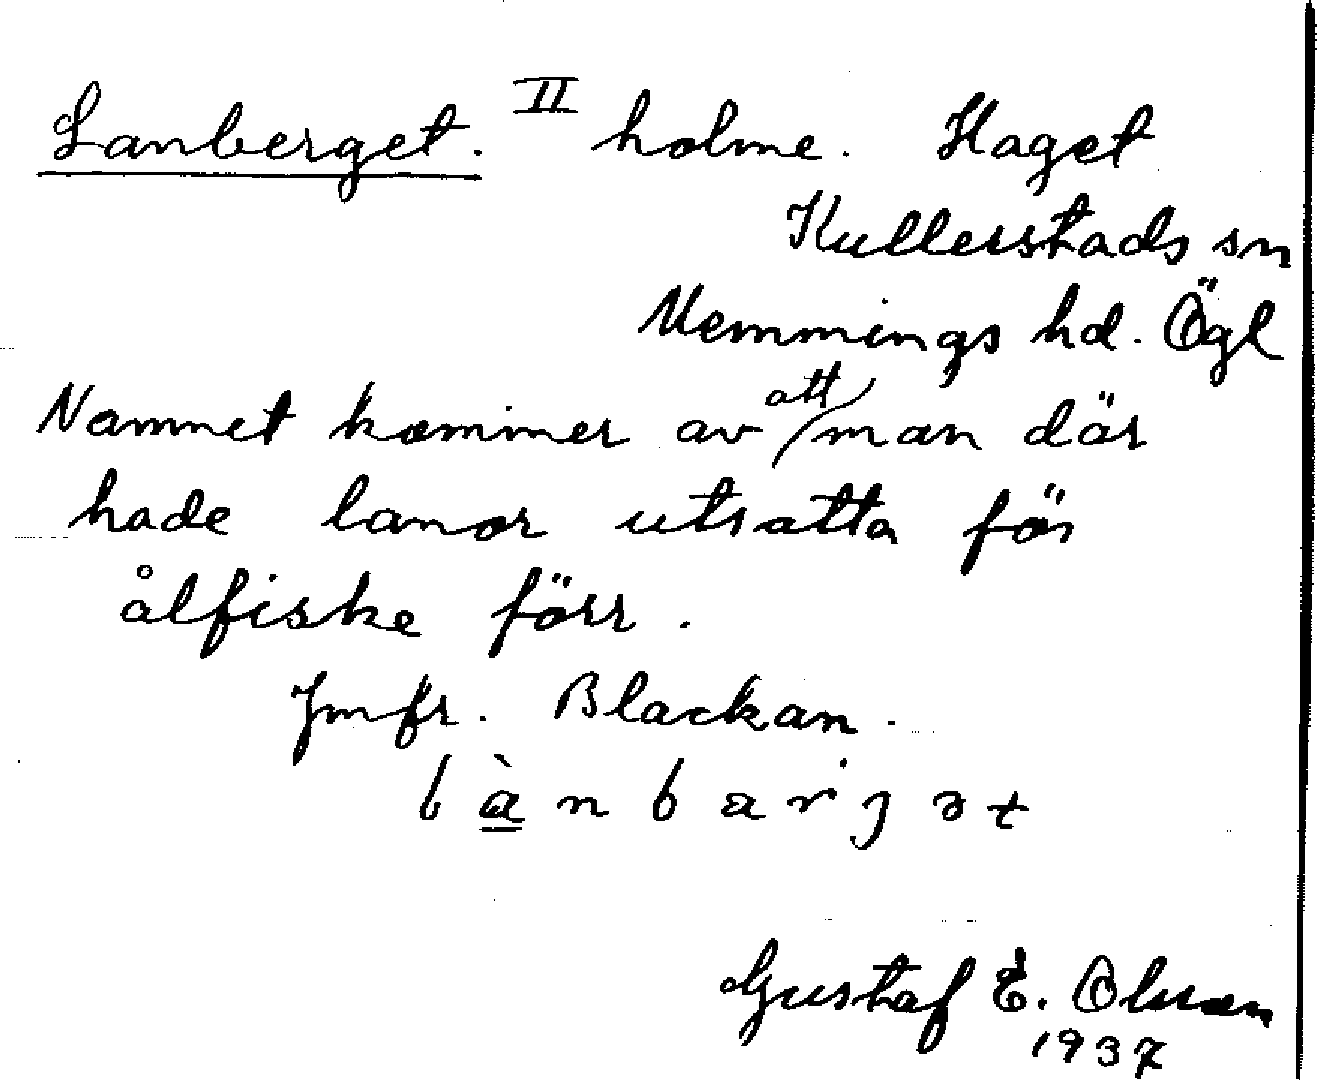 Lanberget. II holme. Haget
Kullerstads sn
Memmings hd. Ögl
Namnet kommer av att man där
hade lanor utsatta för
ålfiske förr.
Jmfr. Blackan.
l à n b a r j ə t
Gustaf E. Olsson
1937